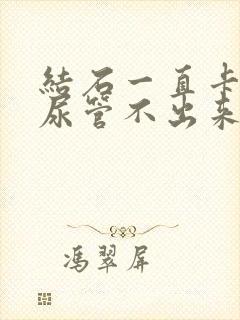 結石一直卡
尿管不出来
馮翠屏